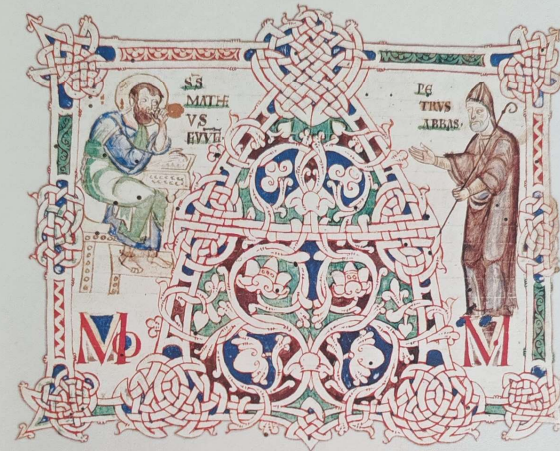 SS
MATHE
VS
PE
TRVS
ABBAS·
A
M
M